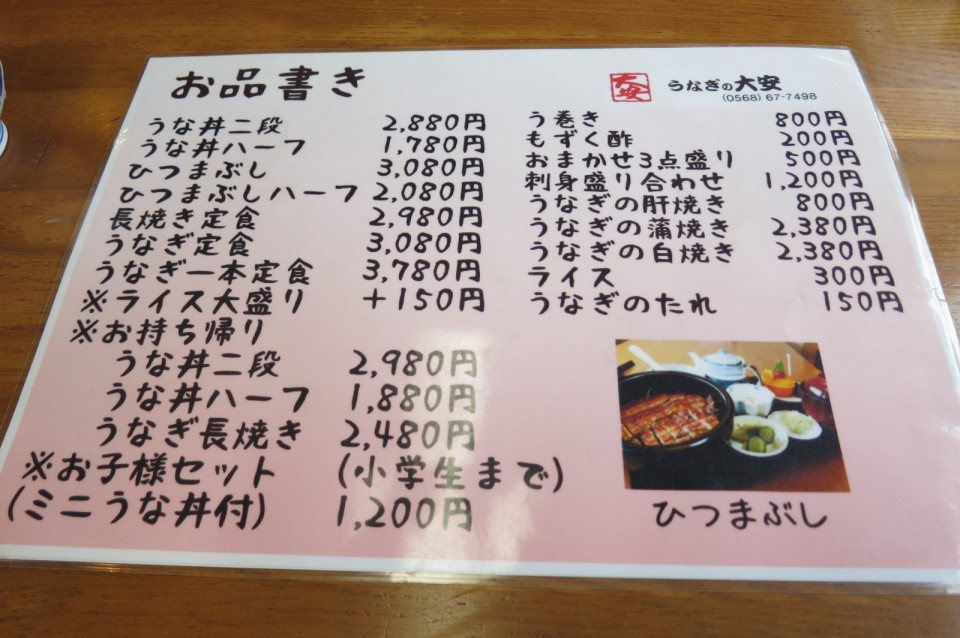 お品書き
うな丼二段 2,880円
うな丼ハーフ 1,780円
ひつまぶし 3,080円
ひつまぶしハーフ 2,080円
長焼き定食 2,980円
うなぎ定食 3,080円
うなぎ一本定食 3,780円
※ライス大盛り +150円
※お持ち帰り
うな丼二段 2,980円
うな丼ハーフ 1,880円
うなぎ長焼き 2,480円
※お子様セット (小学生まで)
(ミニうな丼付) 1,200円
大安 うなぎの大安
(0568) 67-7498
う巻き 800円
もずく酢 200円
おまかせ3点盛り 500円
刺身盛り合わせ 1,200円
うなぎの肝焼き 800円
うなぎの蒲焼き 2,380円
うなぎの白焼き 2,380円
ライス 300円
うなぎのたれ 150円
ひつまぶし